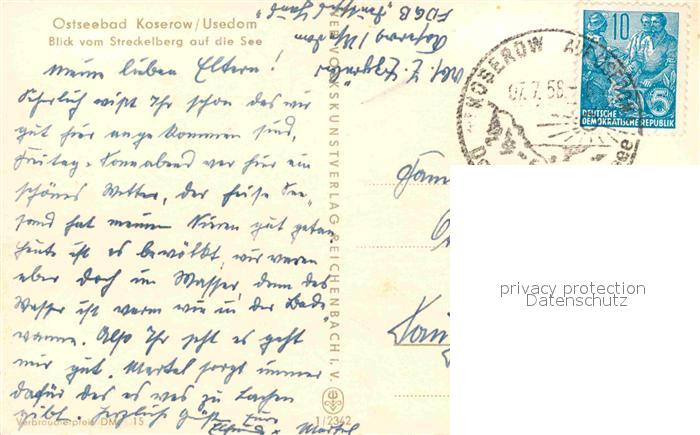 Ostseebad Koserow/Usedom
Blick vom Streckelberg auf die See
Meine lieben Eltern!
Sicherlich wißt Ihr schon das wir
gut hier angekommen sind,
Freitag - Sonnabend war hier ein
schönes Wetter, der heiße See-
sand hat meinen Nieren gut getan.
Heute ist es bewölkt, wir waren
aber doch im Wasser, denn das
Wasser ist warm wie in der Bade
wanne. Also Ihr seht es geht
mir gut. Martel sorgt immer
dafür das es was zu lachen
gibt. Herzlich grüßt Eure
Martel
Verbraucherpreis DM 15
1/2342
VOLKSKUNSTVERLAG REICHENBACH i. V.
Koserow
FDGB
KOSEROW AUF USEDOM
07.7.58
10
5
DEUTSCHE
DEMOKRATISCHE REPUBLIK
Fam
privacy protection
Datenschutz